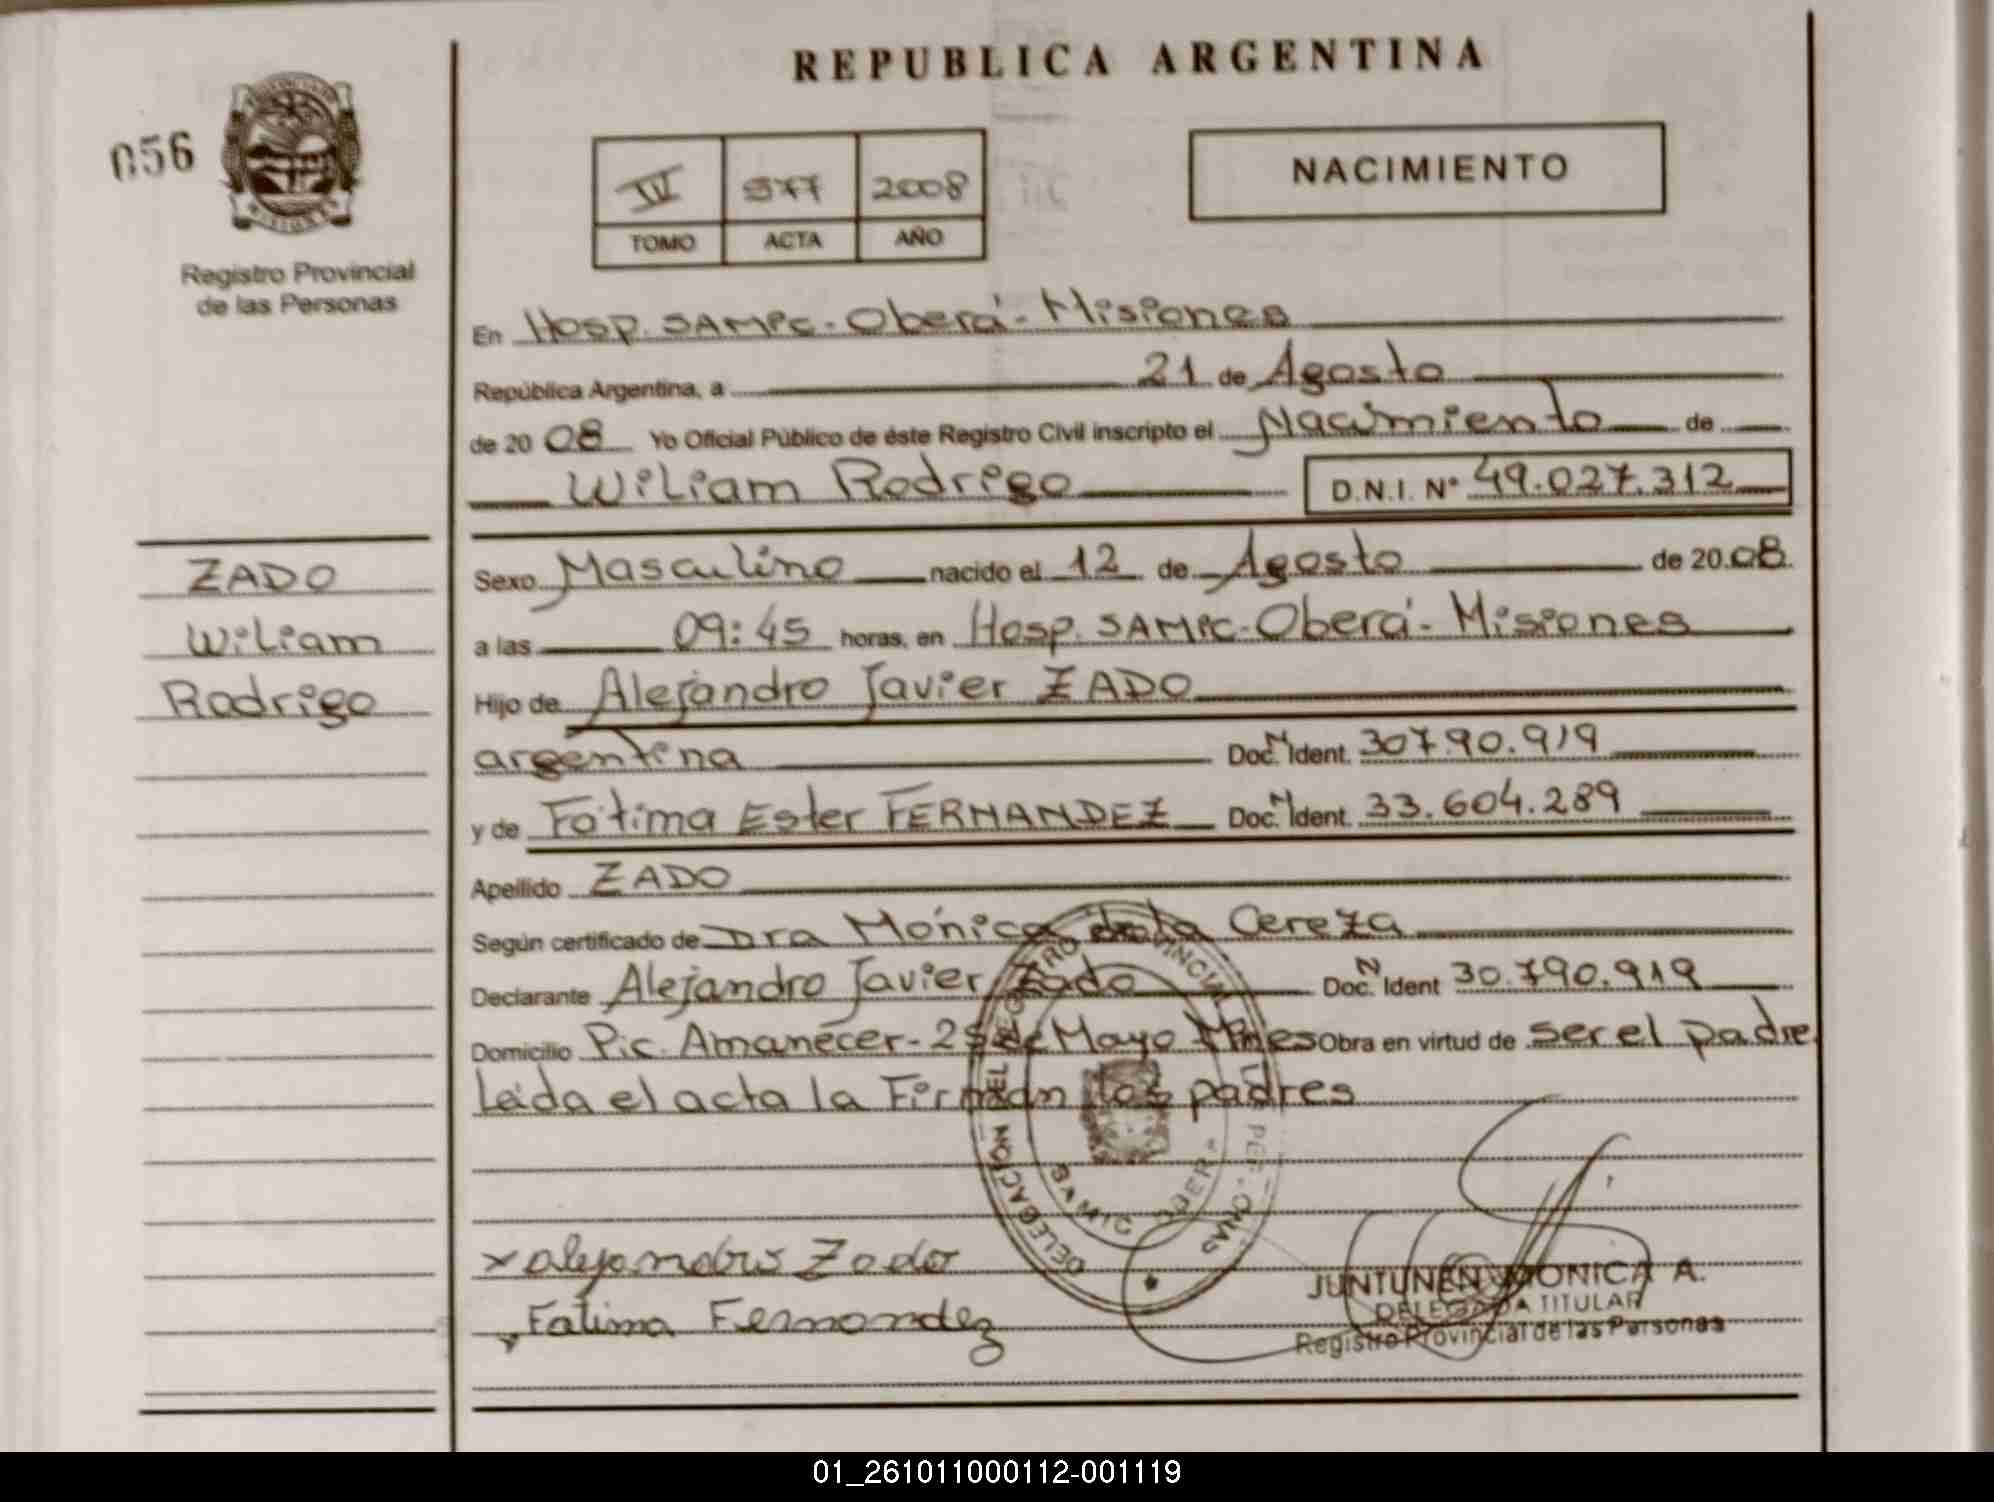 REPUBLICA ARGENTINA
056
IV 977 2008
TOMO ACTA AÑO
NACIMIENTO
Registro Provincial
de las Personas
En Hosp. SAMIC - Oberá - Misiones
República Argentina, a 21 de Agosto
de 20 08 Yo Oficial Público de éste Registro Civil inscripto el Nacimiento de
Wiliam Rodrigo D.N.I. Nº 49.027.312
ZADO
Wiliam
Rodrigo
Sexo Masculino nacido el 12 de Agosto de 20 08
a las 09:45 horas, en Hosp. SAMIC - Oberá - Misiones
Hijo de Alejandro Javier ZADO
argentina Doc. N Ident. 30790.919
y de Fátima Ester FERNANDEZ Doc. N Ident. 33.604.289
Apellido ZADO
Según certificado de Dra Mónica de la Cereza
Declarante Alejandro Javier Zado Doc. N Ident 30.790.919
Domicilio Pic. Amanecer - 25 de Mayo Mnes Obra en virtud de ser el padre
Leída el acta la Firman los padres
DELEGACION DEL REGISTRO PROVINCIAL
SAMIC
x alejandro Zado
x Fatima Fernandez
JUNTUNEN MONICA A.
DELEGADA TITULAR
Registro Provincial de las Personas
01_261011000112-001119